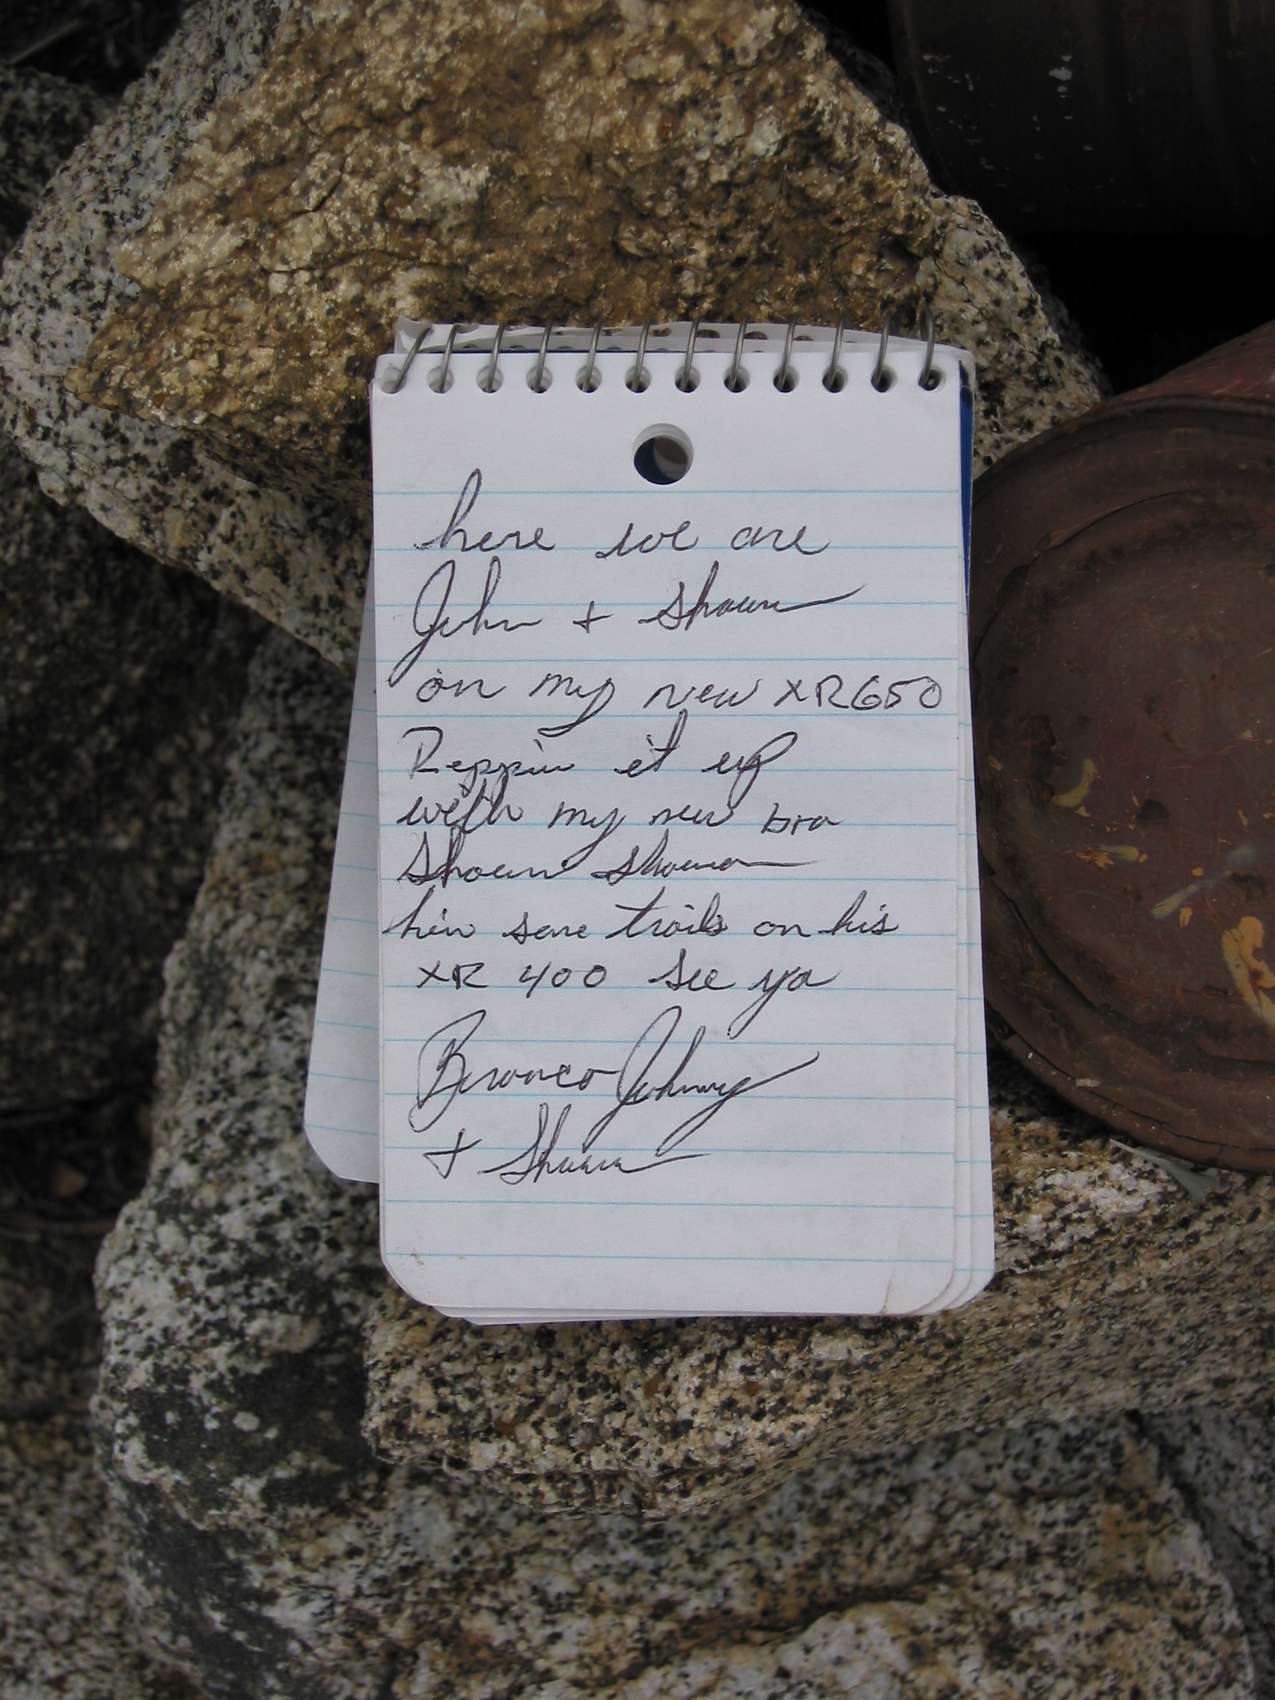 here we are
John + Shawn
on my new XR650
Reppin it up
with my new bra
Shawn Shown
him some trails on his
XR 400 See ya
Bronco Johnny
+ Shawn